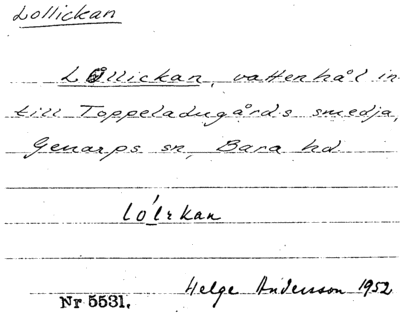 Lollickan
Lollickan, vattenhål in
till Toppeladugårds smedja,
Genarps sn, Bara hd
Helge Andersson 1952
Nr 5531.